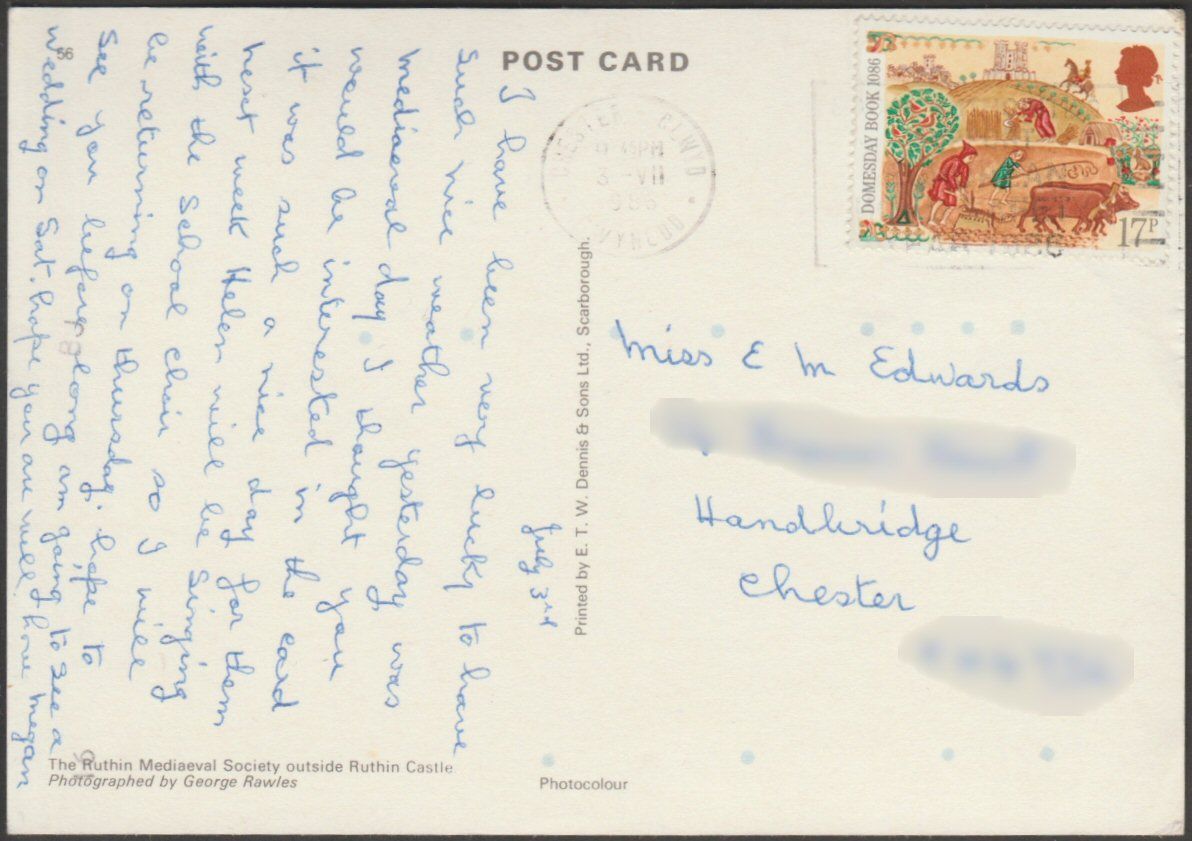 56
POST CARD
DOMESDAY BOOK 1086
17P
CHESTER CLWYD
PM
VII
July 3rd
I have been very lucky to have
such nice weather yesterday was
mediaeval day I thought you
would be interested in the card
it was such a nice day for them
next week Helen will be singing
with the School Choir so I will
be returning on thursday. hope to
See you before long am going to see a
wedding on Sat. hope you are well, love Megan
Miss E M Edwards
Handbridge
Chester
Printed by E. T. W. Dennis & Sons Ltd., Scarborough.
The Ruthin Mediaeval Society outside Ruthin Castle
Photographed by George Rawles
Photocolour